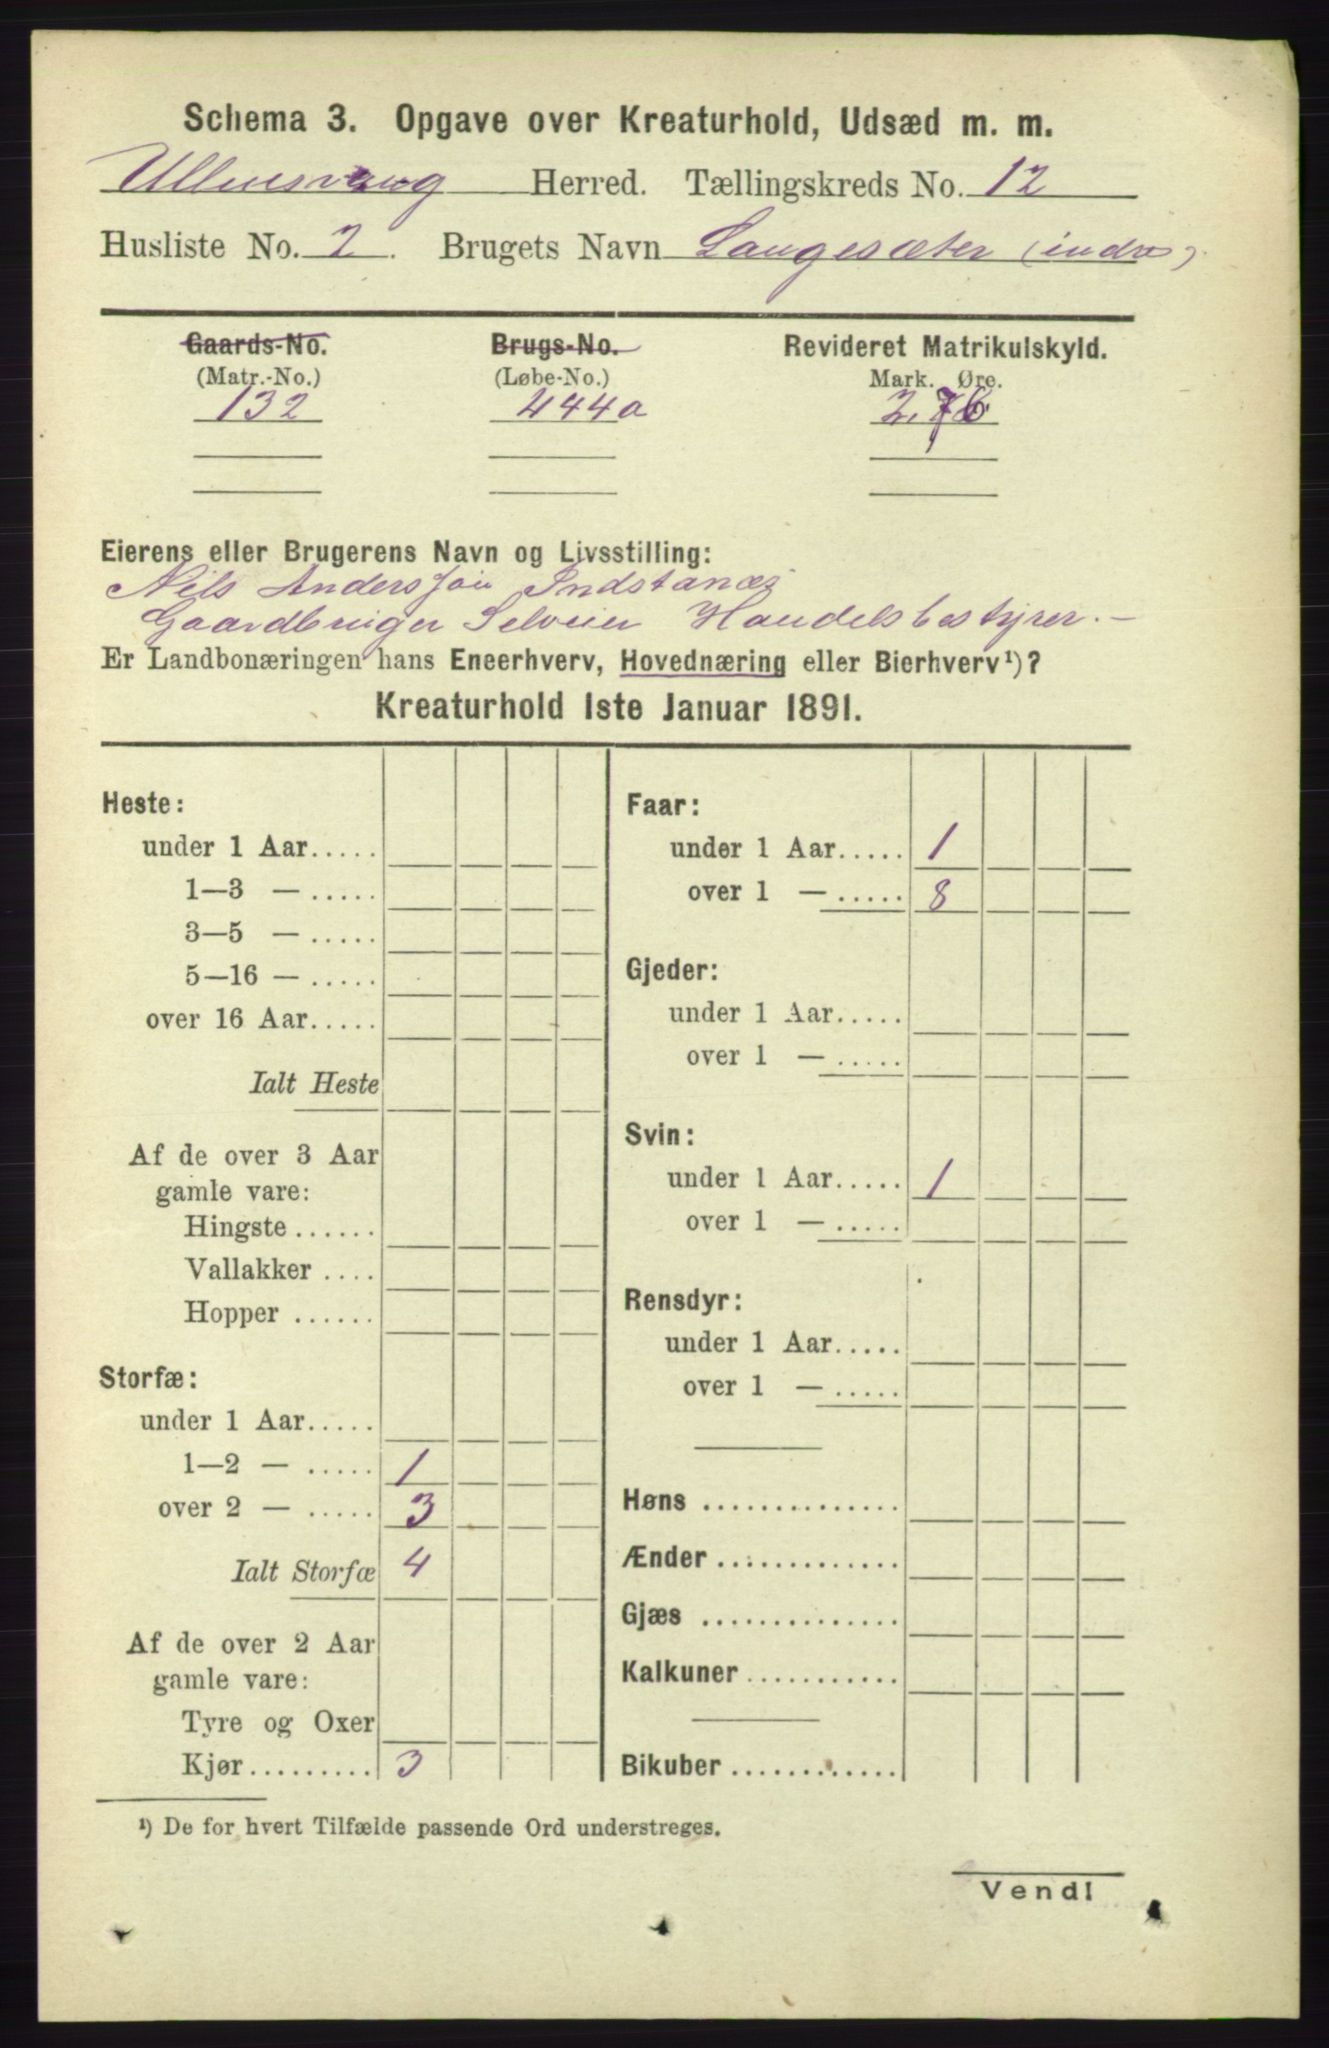 Schema 3. Opgave over Kreaturhold, Udsæd m. m.
Ullensvang Herred. Tællingskreds No. 12
Husliste No. 2. Brugets Navn Langesæter (indre)
Gaards-No. Brugs-No. Revideret Matrikulskyld.
(Matr.-No.) (Løbe-No.) Mark. Øre.
132 444a
Eierens eller Brugerens Navn og Livsstilling:
Nils Andersson Indstanæs
Gaardbruger Selveier Handelsbestyrer. —
Er Landbonæringen hans Eneerhverv, Hovednæring eller Bierhverv¹)?
Kreaturhold 1ste Januar 1891.
Heste:
under 1 Aar.....
1—3 — .....
3—5 — .....
5—16 — .....
over 16 Aar.....
Ialt Heste
Af de over 3 Aar
gamle vare:
Hingste ......
Vallakker ....
Hopper ......
Storfæ:
under 1 Aar.....
1—2 — ..... 1
over 2 — ..... 3
Ialt Storfæ 4
Af de over 2 Aar
gamle vare:
Tyre og Oxer
Kjør......... 3
Faar:
under 1 Aar..... 1
over 1 — ..... 8
Gjeder:
under 1 Aar.....
over 1 — .....
Svin:
under 1 Aar..... 1
over 1 — .....
Rensdyr:
under 1 Aar.....
over 1 — .....
Høns ..............
Ænder .............
Gjæs ..............
Kalkuner ...........
Bikuber ............
¹) De for hvert Tilfælde passende Ord understreges.
Vend!